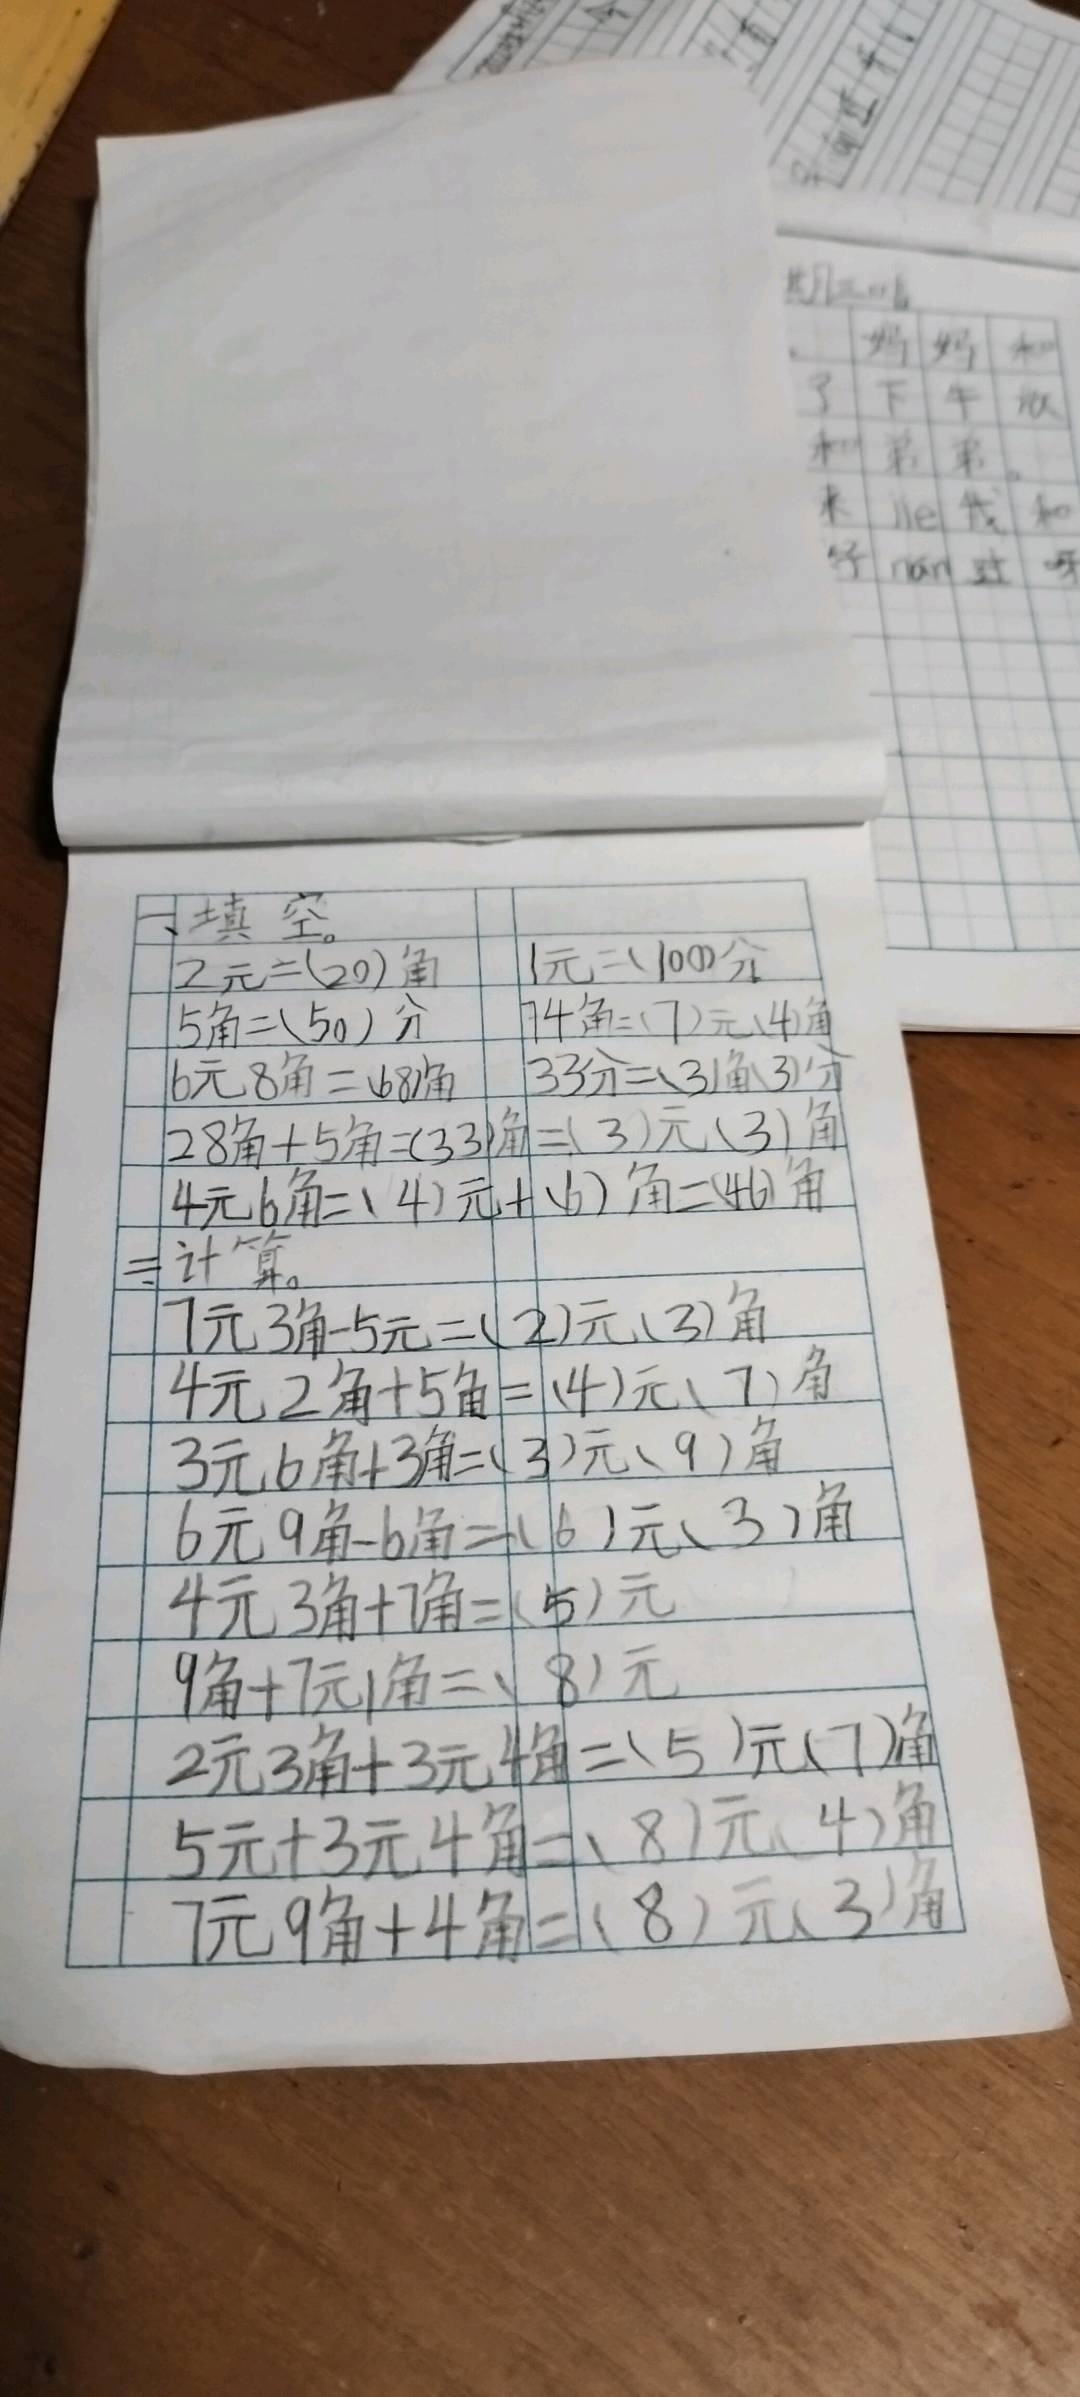 一、填空。
2元=(20)角 1元=(100)分
5角=(50)分 74角=(7)元(4)角
6元8角=(68)角 33分=(3)角(3)分
28角+5角=(33)角=(3)元(3)角
4元6角=(4)元+(6)角=(46)角
二、计算。
7元3角-5元=(2)元(3)角
4元2角+5角=(4)元(7)角
3元6角+3角=(3)元(9)角
6元9角-6角=(6)元(3)角
4元3角+7角=(5)元
9角+7元1角=(8)元
2元3角+3元4角=(5)元(7)角
5元+3元4角=(8)元(4)角
7元9角+4角=(8)元(3)角
妈妈和
了下午
和弟弟。
来jie我和
仔nán过呀